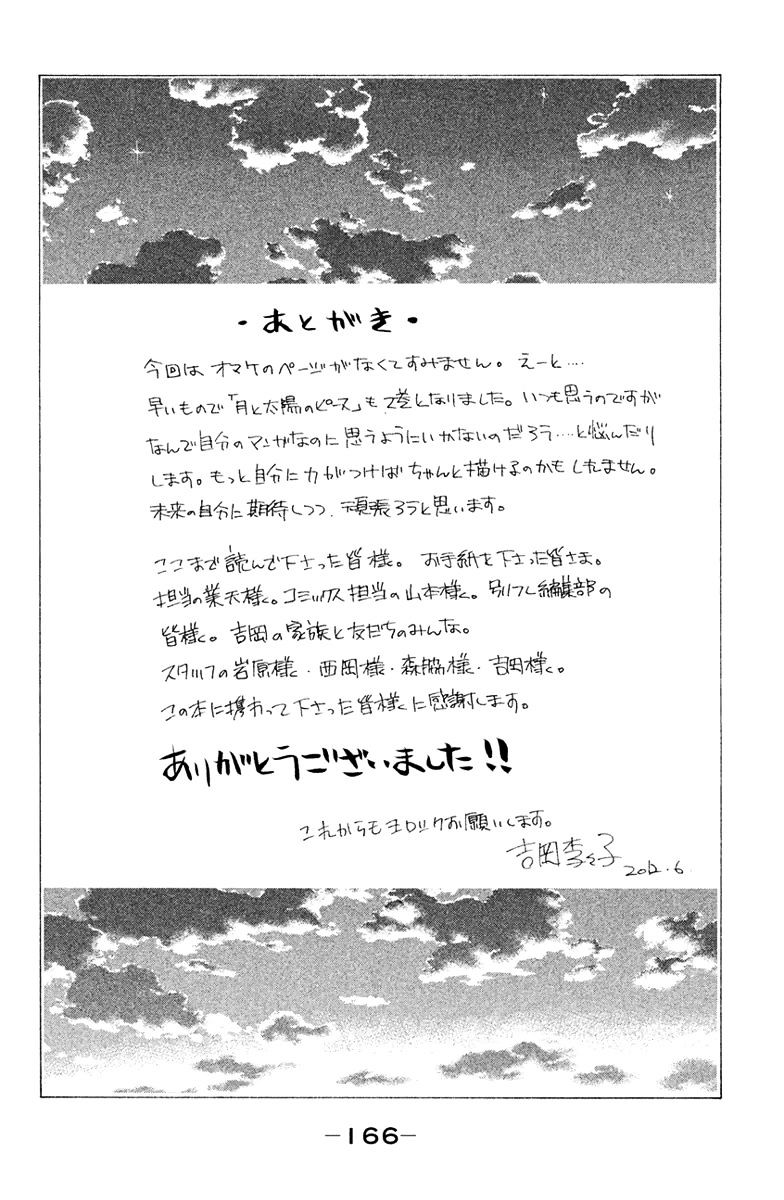 ・あとがき・
今回は オマケのページがなくてすみません。えーと‥‥
早いもので「月と太陽のピース」も2巻となりました。いつも思うのですが
なんで自分のマンガなのに思うようにいかないのだろう‥‥と悩んだり
します。もっと自分に力がつけばちゃんと描けるのかもしれません。
未来の自分に期待しつつ、頑張ろうと思います。
ここまで読んで下さった皆様。お手紙を下さった皆さま。
担当の業天様。コミックス担当の山本様。別フレ編集部の
皆様。吉岡の家族と友だちのみんな。
スタッフの岩原様・西岡様・森脇様・吉田様。
この本に携わって下さった皆様に感謝します。
ありがとうございました!!
これからもヨロシクお願いします。
吉岡李々子
2012.6
－166－